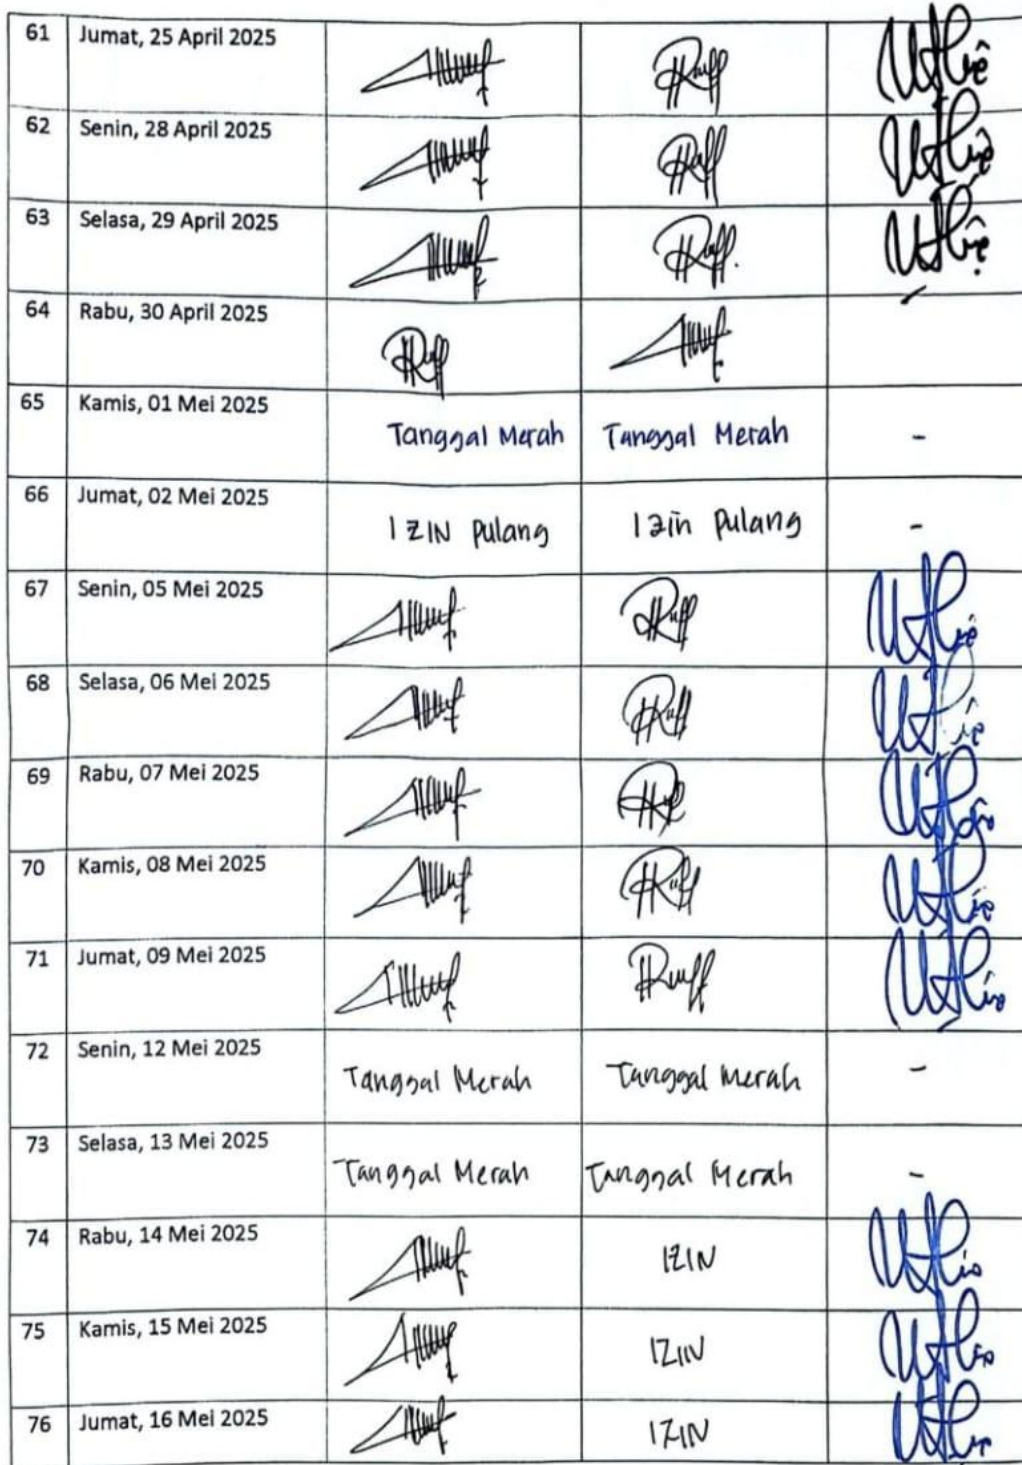 61 Jumat, 25 April 2025
62 Senin, 28 April 2025
63 Selasa, 29 April 2025
64 Rabu, 30 April 2025
65 Kamis, 01 Mei 2025 Tanggal Merah Tanggal Merah -
66 Jumat, 02 Mei 2025 IZIN pulang Izin pulang -
67 Senin, 05 Mei 2025
68 Selasa, 06 Mei 2025
69 Rabu, 07 Mei 2025
70 Kamis, 08 Mei 2025
71 Jumat, 09 Mei 2025
72 Senin, 12 Mei 2025 Tanggal Merah Tanggal Merah -
73 Selasa, 13 Mei 2025 Tanggal Merah Tanggal Merah -
74 Rabu, 14 Mei 2025 IZIN
75 Kamis, 15 Mei 2025 IZIN
76 Jumat, 16 Mei 2025 IZIN